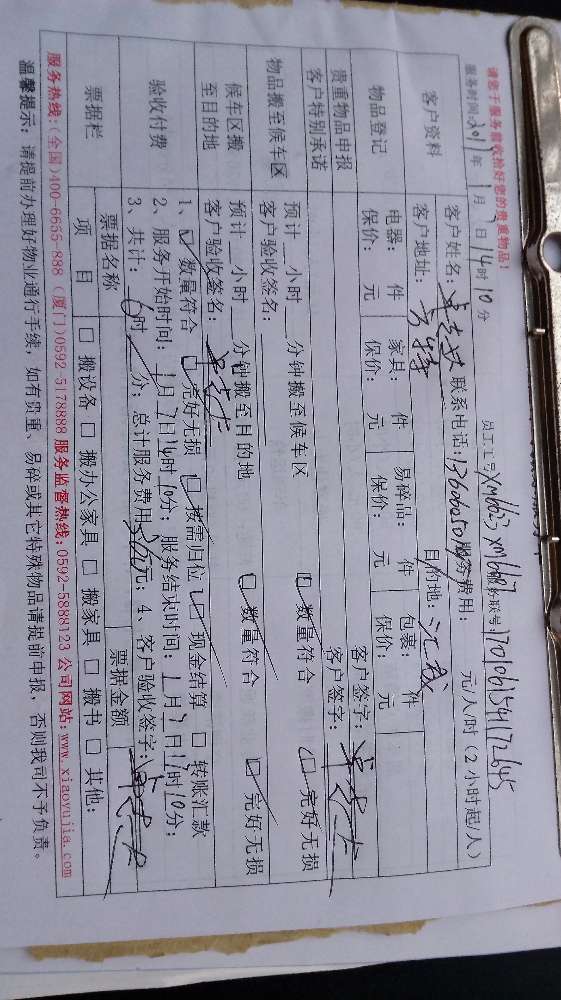 请您于服务前收拾好您的贵重物品！
服务时间：2017年1月7日14时10分 员工工号：XM663，XM667 服务联号：170106154172645
客户资料
客户姓名： 联系电话：13606050 服务费用： 元/人/时（2小时起/人）
客户地址： 目的地：
物品登记
电器： 件 家具： 件 易碎品： 件 包裹： 件
保价： 元 保价： 元 保价： 元 保价： 元
贵重物品申报 客户签字：
客户特别承诺 客户签字：
物品搬至候车区
预计__小时__分钟搬至候车区 数量符合 完好无损
客户验收签名：
候车区搬至目的地
预计__小时__分钟搬至目的地 数量符合 完好无损
客户验收签名：
验收付费
1、数量符合 完好无损 按需归位 现金结算 转账汇款
2、服务开始时间：1月7日14时10分；服务结束时间：1月7日17时10分；
3、共计：6时 分；总计服务费用 元；4、客户验收签字：
票据栏 票据名称 票据金额
项目 搬设备 搬办公家具 搬家具 搬书 其他：
服务热线：(全国)400-6655-888 (厦门)0592-5178888 服务监督热线：0592-5888123 公司网站：www.xiaoyujia.com
温馨提示：请提前办理好物业通行手续，如有贵重、易碎或其它特殊物品请提前申报，否则我司不予负责。